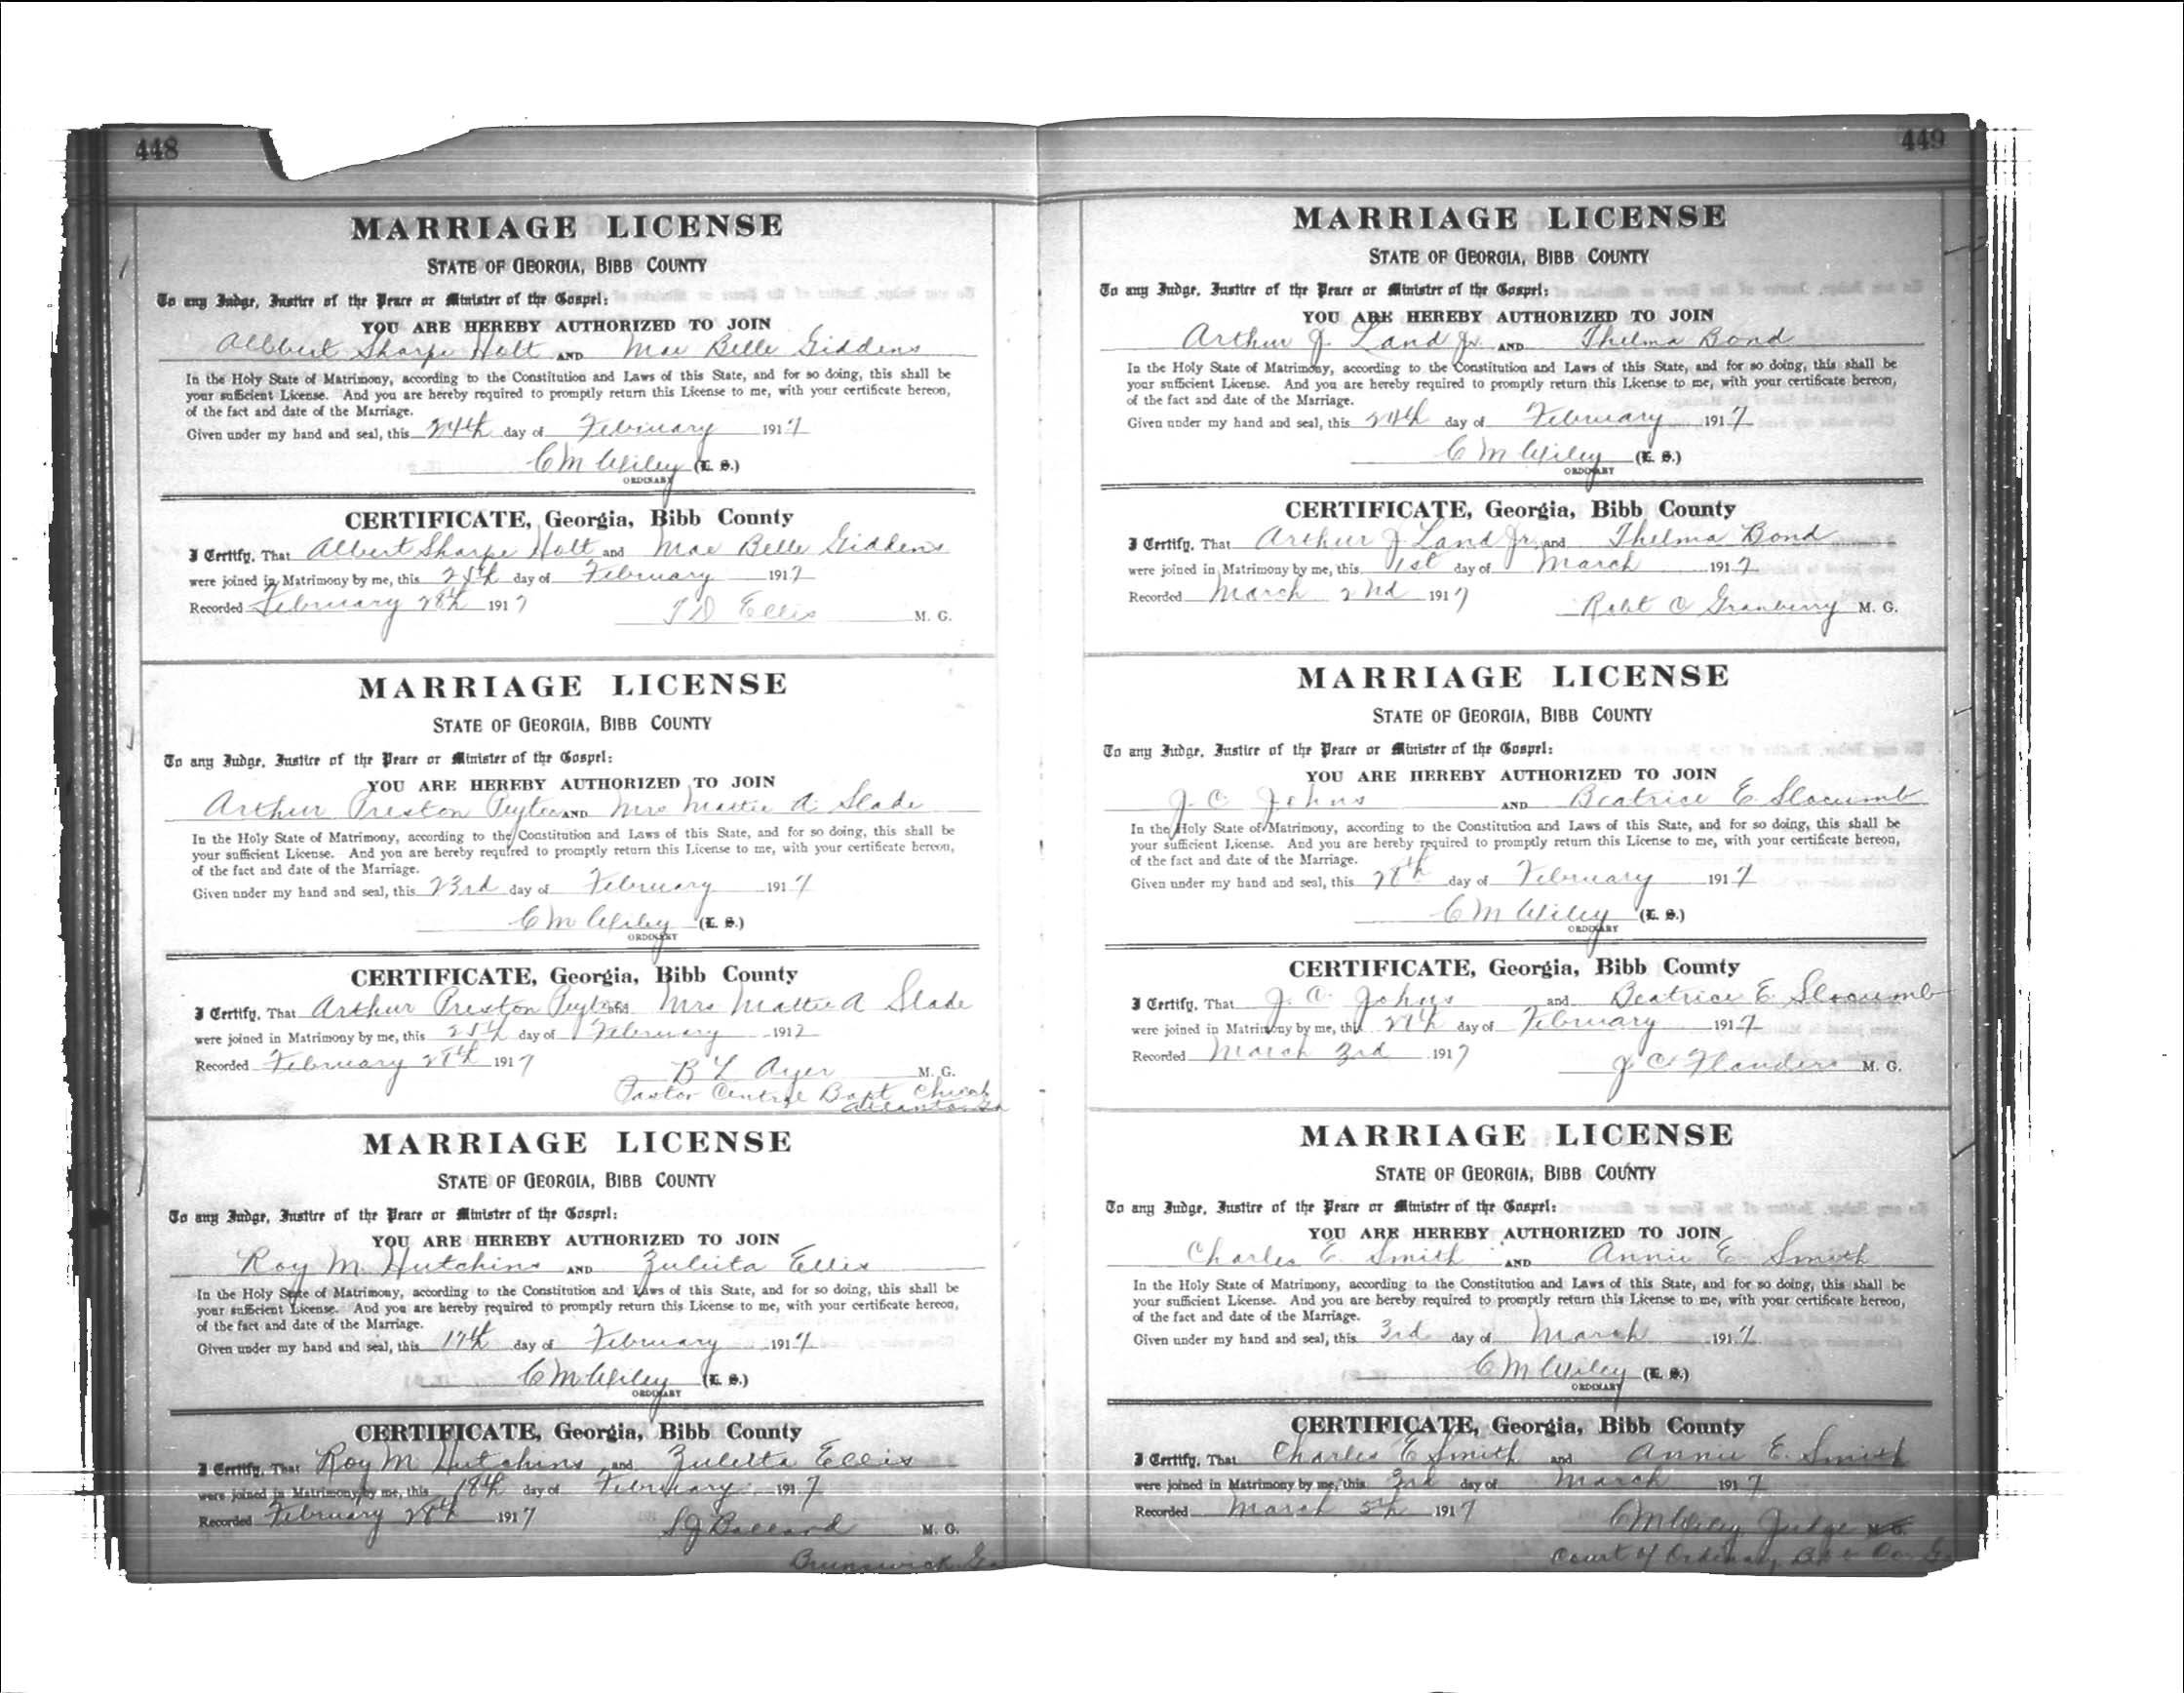 448
MARRIAGE LICENSE
STATE OF GEORGIA, BIBB COUNTY
To any Judge, Justice of the Peace or Minister of the Gospel:
YOU ARE HEREBY AUTHORIZED TO JOIN
Albbert Sharpe Holt AND Mae Belle Giddens
In the Holy State of Matrimony, according to the Constitution and Laws of this State, and for so doing, this shall be
your sufficient License. And you are hereby required to promptly return this License to me, with your certificate hereon,
of the fact and date of the Marriage.
Given under my hand and seal, this 24th day of February 1917
C M Wiley (L. S.)
ORDINARY
CERTIFICATE, Georgia, Bibb County
I Certify, That Albert Sharpe Holt and Mae Belle Giddens
were joined in Matrimony by me, this day of February 1917
Recorded February 28th 1917
T D Ellis M. G.
MARRIAGE LICENSE
STATE OF GEORGIA, BIBB COUNTY
To any Judge, Justice of the Peace or Minister of the Gospel:
YOU ARE HEREBY AUTHORIZED TO JOIN
Arthur Preston AND Mrs Mattie A. Slade
In the Holy State of Matrimony, according to the Constitution and Laws of this State, and for so doing, this shall be
your sufficient License. And you are hereby required to promptly return this License to me, with your certificate hereon,
of the fact and date of the Marriage.
Given under my hand and seal, this 23rd day of February 1917
C M Wiley (L. S.)
ORDINARY
CERTIFICATE, Georgia, Bibb County
I Certify, That Arthur Preston and Mrs Mattie A Slade
were joined in Matrimony by me, this day of February 1917
Recorded February 28th 1917
B L Ayer M. G.
Pastor Central Bapt Church
Atlanta Ga
MARRIAGE LICENSE
STATE OF GEORGIA, BIBB COUNTY
To any Judge, Justice of the Peace or Minister of the Gospel:
YOU ARE HEREBY AUTHORIZED TO JOIN
Roy M Hutchins AND Zuleita Ellis
In the Holy State of Matrimony, according to the Constitution and Laws of this State, and for so doing, this shall be
your sufficient License. And you are hereby required to promptly return this License to me, with your certificate hereon,
of the fact and date of the Marriage.
Given under my hand and seal, this 17th day of February 1917
C M Wiley (L. S.)
ORDINARY
CERTIFICATE, Georgia, Bibb County
I Certify, That Roy M Hutchins and Zuleita Ellis
were joined in Matrimony by me, this 18th day of February 1917
Recorded February 28th 1917
S J Ballard M. G.
Brunswick Ga
449
MARRIAGE LICENSE
STATE OF GEORGIA, BIBB COUNTY
To any Judge, Justice of the Peace or Minister of the Gospel:
YOU ARE HEREBY AUTHORIZED TO JOIN
Arthur J. Land Jr. AND Thelma Bond
In the Holy State of Matrimony, according to the Constitution and Laws of this State, and for so doing, this shall be
your sufficient License. And you are hereby required to promptly return this License to me, with your certificate hereon,
of the fact and date of the Marriage.
Given under my hand and seal, this 24th day of February 1917
C M Wiley (L. S.)
ORDINARY
CERTIFICATE, Georgia, Bibb County
I Certify, That Arthur J. Land Jr. and Thelma Bond
were joined in Matrimony by me, this 1st day of March 1917
Recorded March 2nd 1917
Robt C Granberry M. G.
MARRIAGE LICENSE
STATE OF GEORGIA, BIBB COUNTY
To any Judge, Justice of the Peace or Minister of the Gospel:
YOU ARE HEREBY AUTHORIZED TO JOIN
J. C. Johns AND Beatrice E. Slocumb
In the Holy State of Matrimony, according to the Constitution and Laws of this State, and for so doing, this shall be
your sufficient License. And you are hereby required to promptly return this License to me, with your certificate hereon,
of the fact and date of the Marriage.
Given under my hand and seal, this 28th day of February 1917
C M Wiley (L. S.)
ORDINARY
CERTIFICATE, Georgia, Bibb County
I Certify, That J. C. Johns and Beatrice E. Slocumb
were joined in Matrimony by me, this 28th day of February 1917
Recorded March 3rd 1917
J C Flanders M. G.
MARRIAGE LICENSE
STATE OF GEORGIA, BIBB COUNTY
To any Judge, Justice of the Peace or Minister of the Gospel:
YOU ARE HEREBY AUTHORIZED TO JOIN
Charles E. Smith AND Annie E. Smith
In the Holy State of Matrimony, according to the Constitution and Laws of this State, and for so doing, this shall be
your sufficient License. And you are hereby required to promptly return this License to me, with your certificate hereon,
of the fact and date of the Marriage.
Given under my hand and seal, this 3rd day of March 1917
C M Wiley (L. S.)
ORDINARY
CERTIFICATE, Georgia, Bibb County
I Certify, That Charles E Smith and Annie E. Smith
were joined in Matrimony by me, this 3rd day of March 1917
Recorded March 5th 1917
C M Wiley Judge M. G.
Court of Ordinary Bibb Co Ga